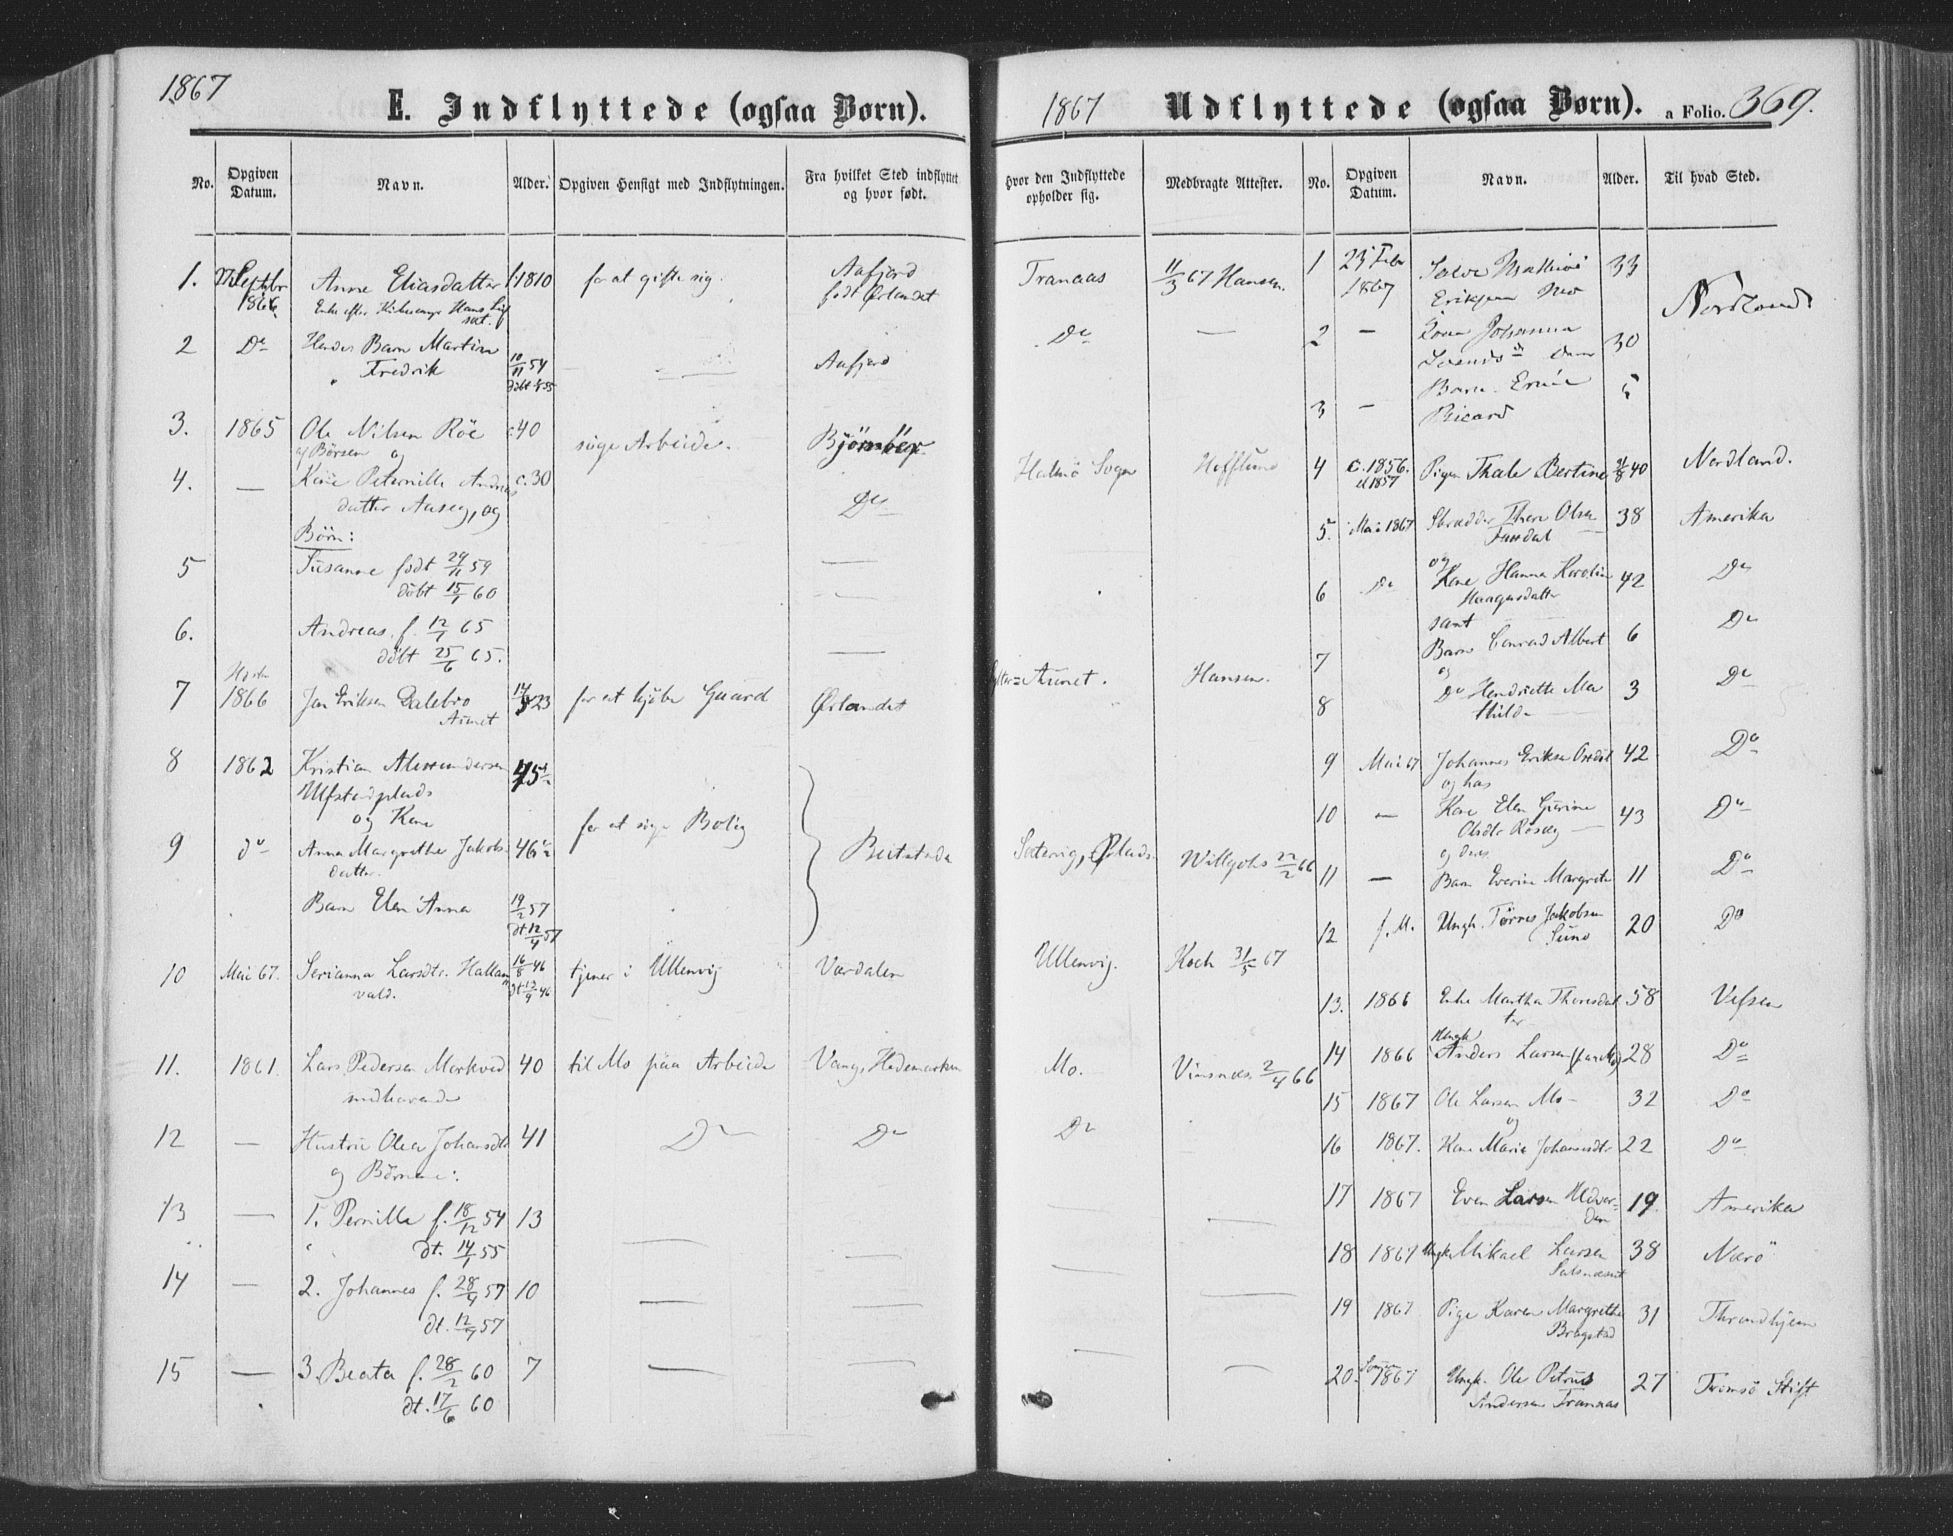 1867
E. Indflyttede (ogsaa Børn).
No.
Opgiven Datum.
Navn.
Alder.
Opgiven Hensigt med Indflytningen.
Fra hvilket Sted indflyttet og hvor født.
1. Septbr 1866 Anne Eliasdatter f. 1810 for at gifte sig. Aafjord
Enke efter Hans født Ørlandet
2 Do Hendes Barn Martin 10/11 54 Aafjord
Fredrik døbt
3. 1865 Ole Nilsen Röe c. 40 søge Arbeide.
og
4. — Peternille Andreas c. 30 Do
datter Aaseg, og
Börn:
5 Susanne født 29/11 59 —
döbt 15/1 60 —
6. Andreas f. 12/1 65
döbt 25/6 65. —
7 1866 Jon Eriksen Dalebro 23 for at kjöbe Gaard Ørlandet
Aunet
8 1862 Kristian 45
Ulfstadplads
og Kone for at søge Bolig
9 do Anna Margrethe Jakobs 46 Beitstaden
datter.
Barn Elen Anna 19/2 57
dt 12/4 57
10 Mai 67. Serianna Larsdtr. Hallan 16/8 46 tjener i Ullenvig Værdalen
vald. dt 13/9 46
11. 1861. Lars Pedersen Markved 40 til Mo paa Arbeide Vang, Hedemarken
medhavende
12 — Hustru Olea Johansdtr 41 Do Do
og Börnene:
13 — 1. Pernille f. 18/12 54 13 —
dt. 14/1 55 —
14 — 2. Johannes f. 28/4 57 10 —
dt. 12/ 57 —
15 — 3. Beata f. 28/2 60 7 — —
dt. 17/6 60
1867
Udflyttede (ogsaa Børn).
a Folio. 369.
Hvor den Indflyttede opholder sig.
Medbragte Attester.
No.
Opgiven Datum.
Navn.
Alder.
Til hvad Sted.
Tranaas 11/3 67 Hansen. 1 23 Febr 33
1867 Nordland
Do — 2 — Johanna 30
3 — Barn 5
Ricard
Sogn 4 c. 1856. Pigen Thale Bertine 40 Nordland.
el 1857
5. Mai 1867 Skrædder Thore Olsen 38 Amerika
og
6 Do Kone Hanna Karolina 42 Do
Haagensdatter
samt
7 Barn Conrad Albert 6 Do
og
Ytter=Aunet. Hansen. 8 Do Hendriette Ma 3 Do
thilde
9 Mai 67. Johannes Eriksen 42 Do
og hans
10 — Kone Elen Gurine 43 Do
Olsdtr
og deres
Willgohs 22/2 66 11 — Barn Everine Margrete 11 Do
12 f. M. Ungk. Tørres Jakobsen 20 Do
Sund
Ullenvig. Koch 31/5 67
13. 1866 Enke Martha Thoresdat 58 Vefsen
ter
Mo. Vinsnes 2/4 66 14 1866 Ungk Anders Larsen 28 Do
15 1867 Ole Larsen Mo 32 Do
og
Do 16 1867. Kone Maria Johannsdtr 22 Do
— — 17 1867 Even Larsen 19. Amerika
— 18 1867 Ungk. Mikael Larsen 38 Nærö
Salsnæset
— 19 1867 Pige Karen Margrethe 31 Throndhjem
Bragstad
— — 20. 1867 Ungk. Ole Petrus 27 Tromsö Stift
Andersen Tranaas